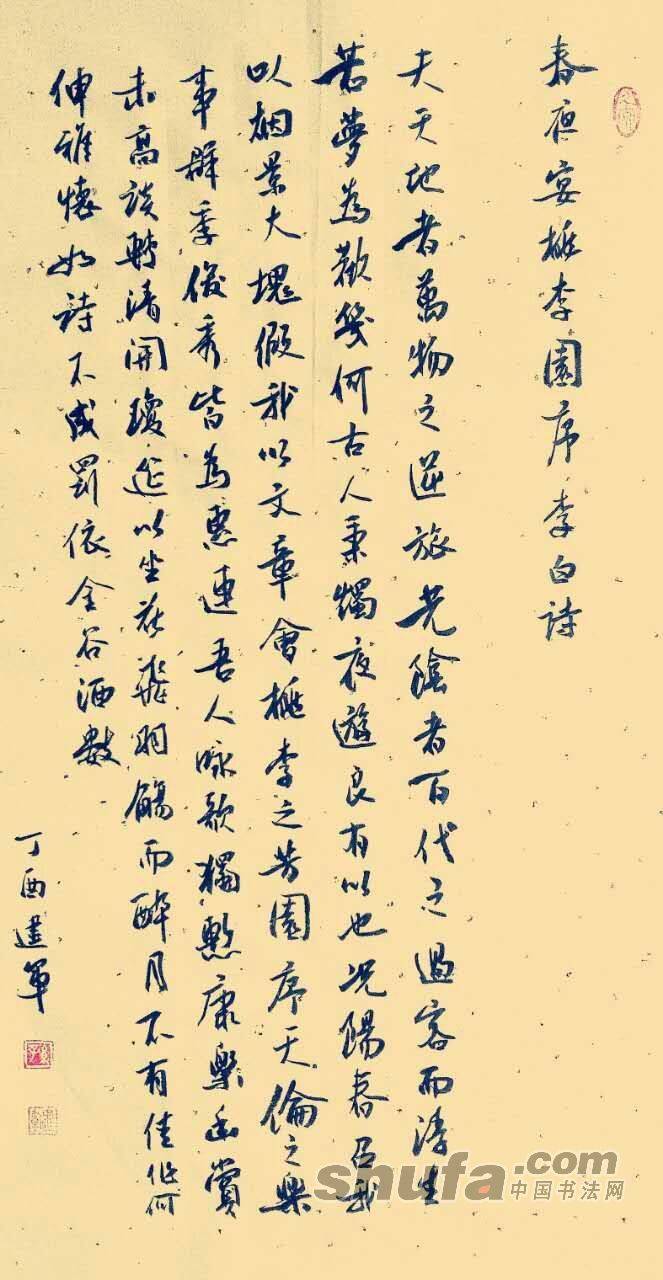 春夜宴桃李園序李白詩
夫天地者萬物之逆旅光陰者百代之過客而浮生
若夢為歡幾何古人秉燭夜遊良有以也況陽春召我
以烟景大塊假我以文章會桃李之芳園序天倫之樂
事群季俊秀皆為惠連吾人咏歌獨慙康樂幽賞
未高談轉清開瓊筵以坐花飛羽觴而醉月不有佳作何
伸雅懷如詩不成罰依金谷酒數
丁酉建軍
shufa.com
中国书法网